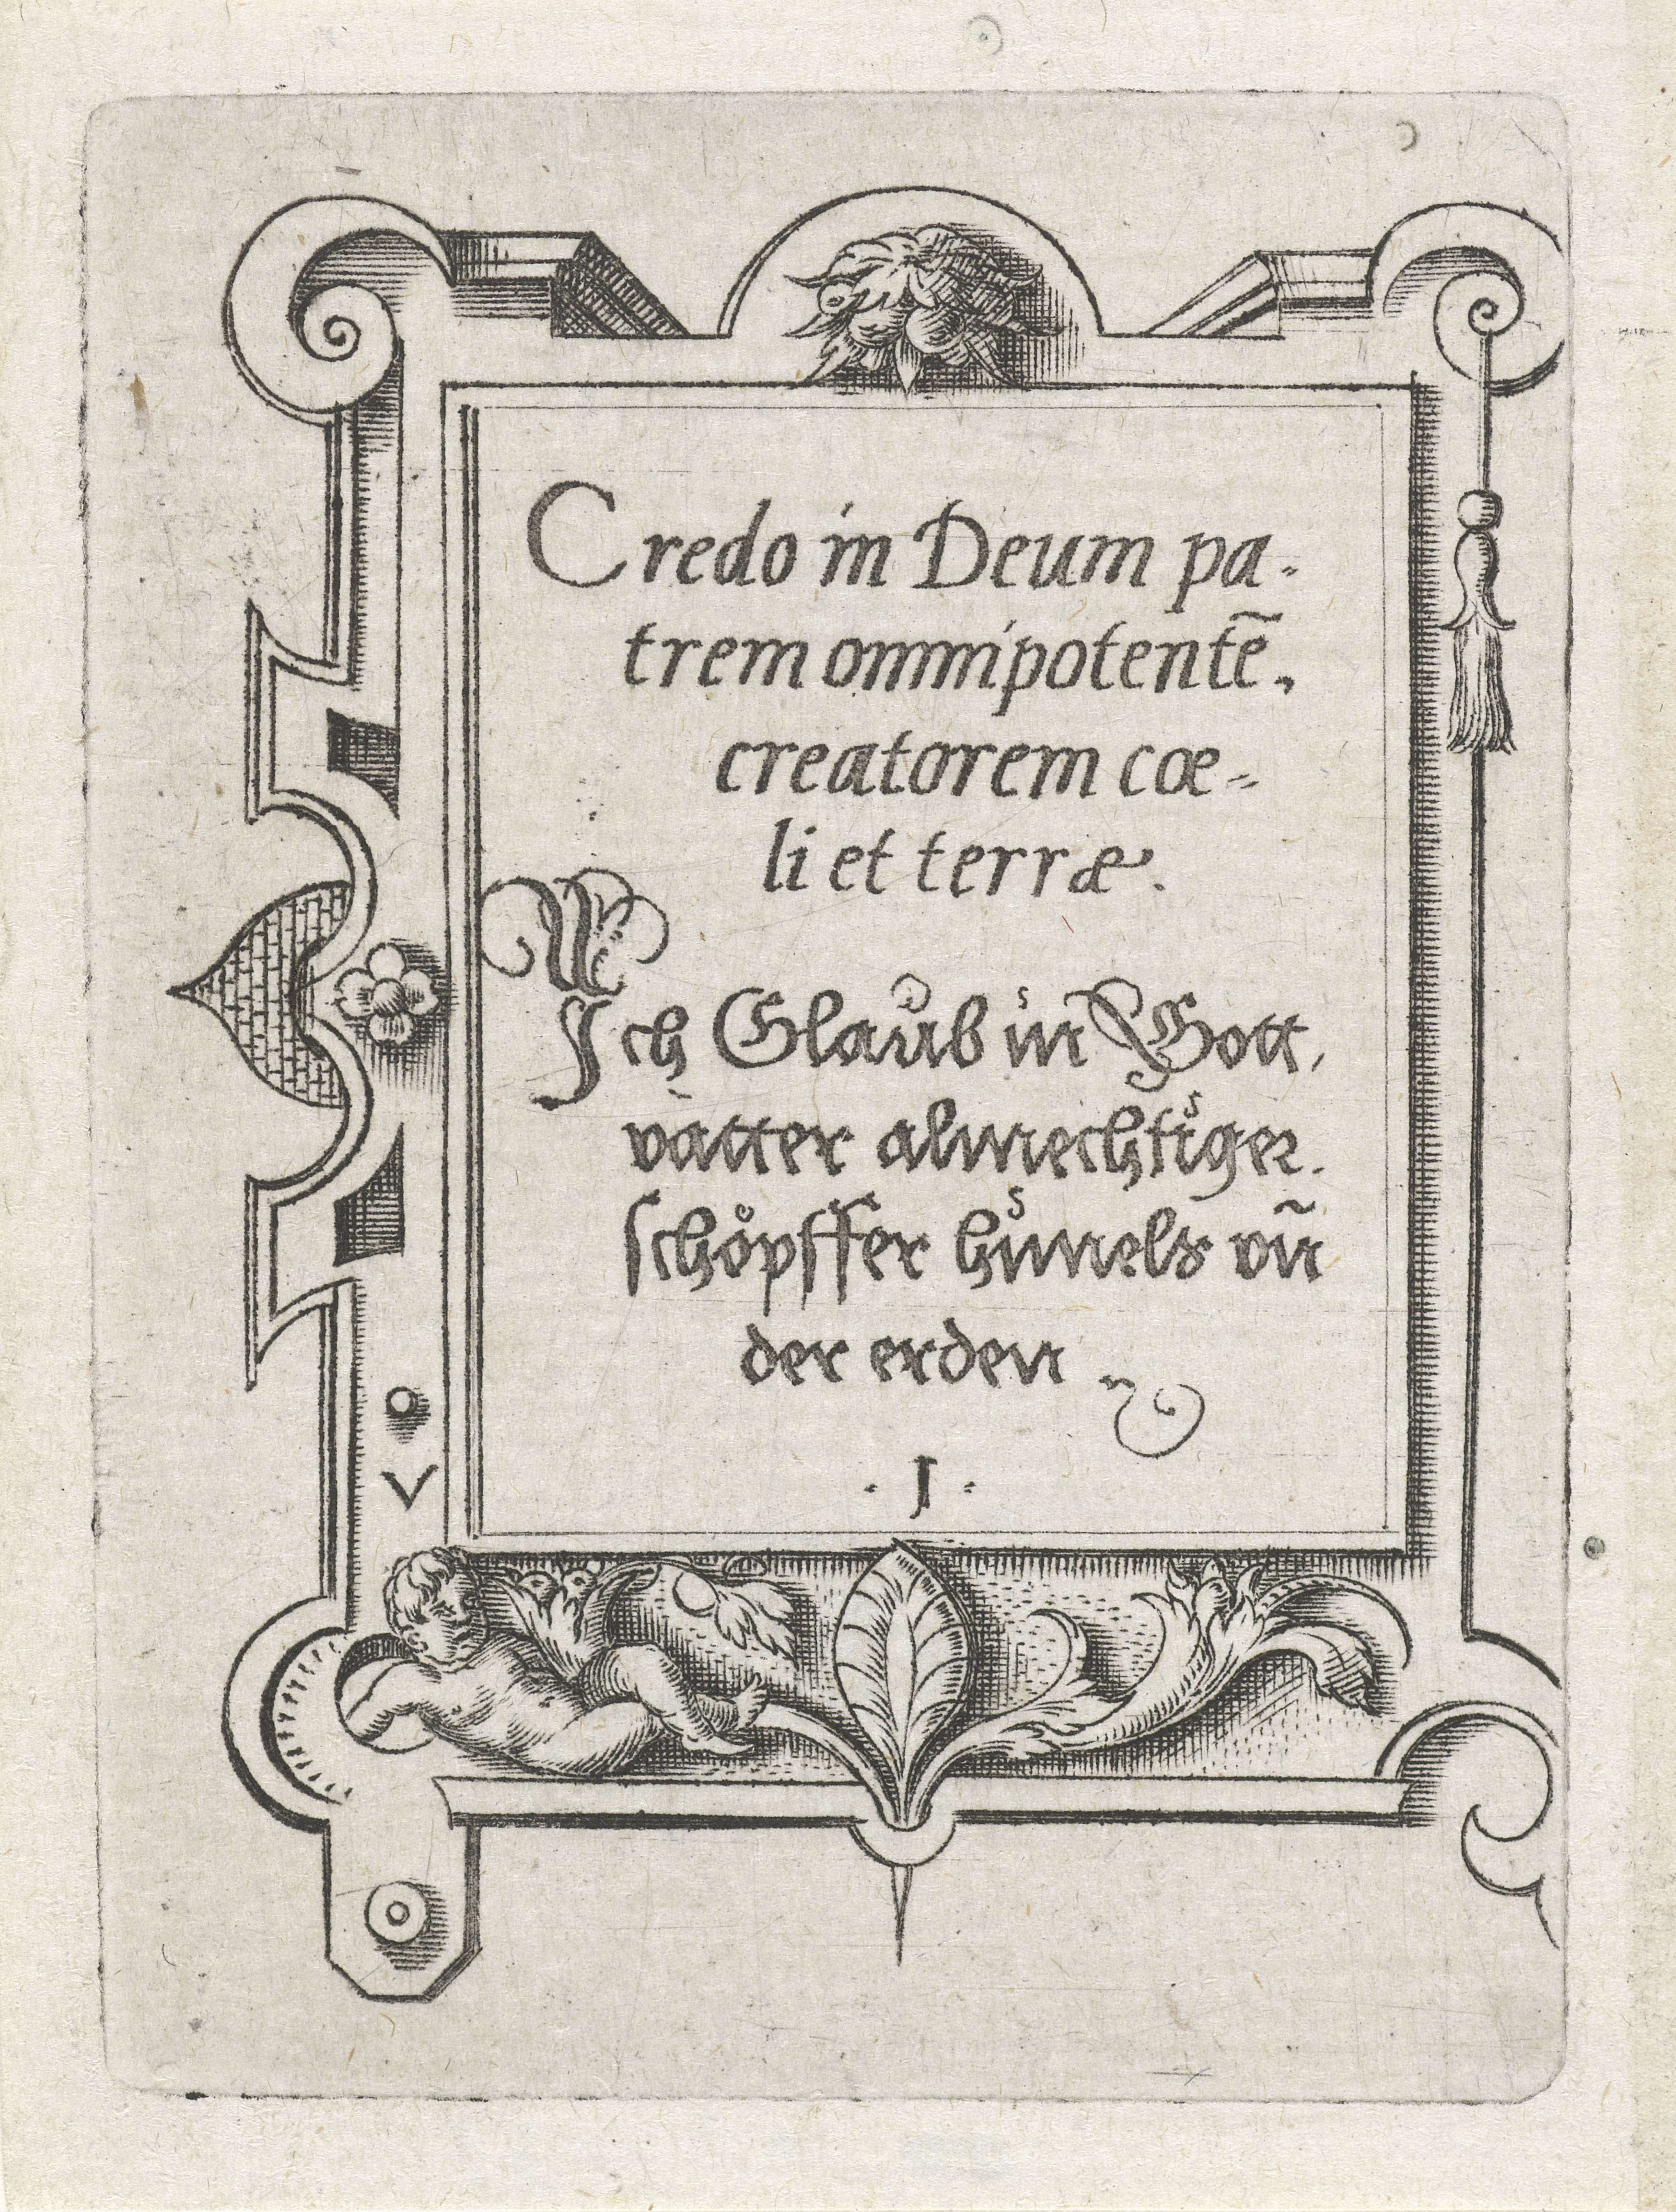 Credo in Deum pa-
trem omnipotentẽ,
creatorem cœ-
li et terræ.
Ich Glaub in Gott,
vatter almechtiger.
schöpffer himels vñ
der erden
. I .